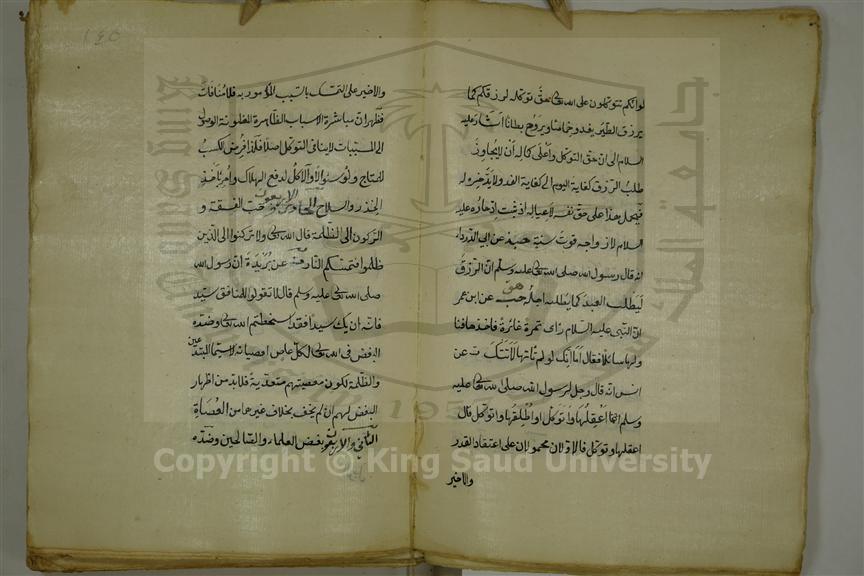 لو أنكم تتوكلون على الله تعالى حق توكله لرزقكم كما
يرزق الطير يغدو خماصا ويروح بطانا أشار عليه
السلام الى ان حق التوكل وأعلى كماله أن لا يجاوز
طلب الرزق كفاية اليوم الى كفاية الغد ولا يدخر له
فيحمل هذا على حق نفسه لا عياله اذ ثبت ادخاره عليه
السلام لازواجه قوت سنة حب عن ابي الدرداء
انه قال رسول الله صلى الله تعالى عليه وسلم ان الرزق
ليطلب العبد كما يطلبه اجله حب هق عن ابن عمر
ان النبي عليه السلام رأى تمرة غائرة فاخذها فنا
ولها سائلا فقال أما انك لو لم تأتها لأتتك ت عن
انس انه قال رجل لرسول الله صلى الله تعالى عليه
وسلم انما أعقلها وأتوكل او اطلقها واتوكل قال
اعقلها وتوكل فالاولان محمولان على اعتقاد القدر
والاخير
١٤٥
والاخير على التمسك بالسبب المأمور به فلا منافات
فظهر ان مباشرة الاسباب الظاهرة المظنونة الوصل
الى المسببات لا ينافى التوكل اصلا فلذا فرض الكسب
للمحتاج ولو سؤالا والاكل لدفع الهلاك وامر بأخذ
الحذر والسلاح الحادى والاربعون حب الفسقة و
الركون الى الظلمة قال الله تعالى ولا تركنوا الى الذين
ظلموا فتمسكم النار عن بريدة ان رسول الله
صلى الله تعالى عليه وسلم قال لا تقولوا للمنافق سيد
فانه ان يك سيدا فقد اسخطتم الله تعالى وضده
البغض فى الله تعالى لكل عاص لعصيانه لا سيما المبتدعين
والظلمة لكون معصيتهم متعدية فلابد من اظهار
البغض لهم ان لم يخف بخلاف غيرهما من العصاة
الثانى والاربعون بغض العلماء والصالحين وضده
Copyright © King Saud University
جامعة الملك
King Saud University
1957